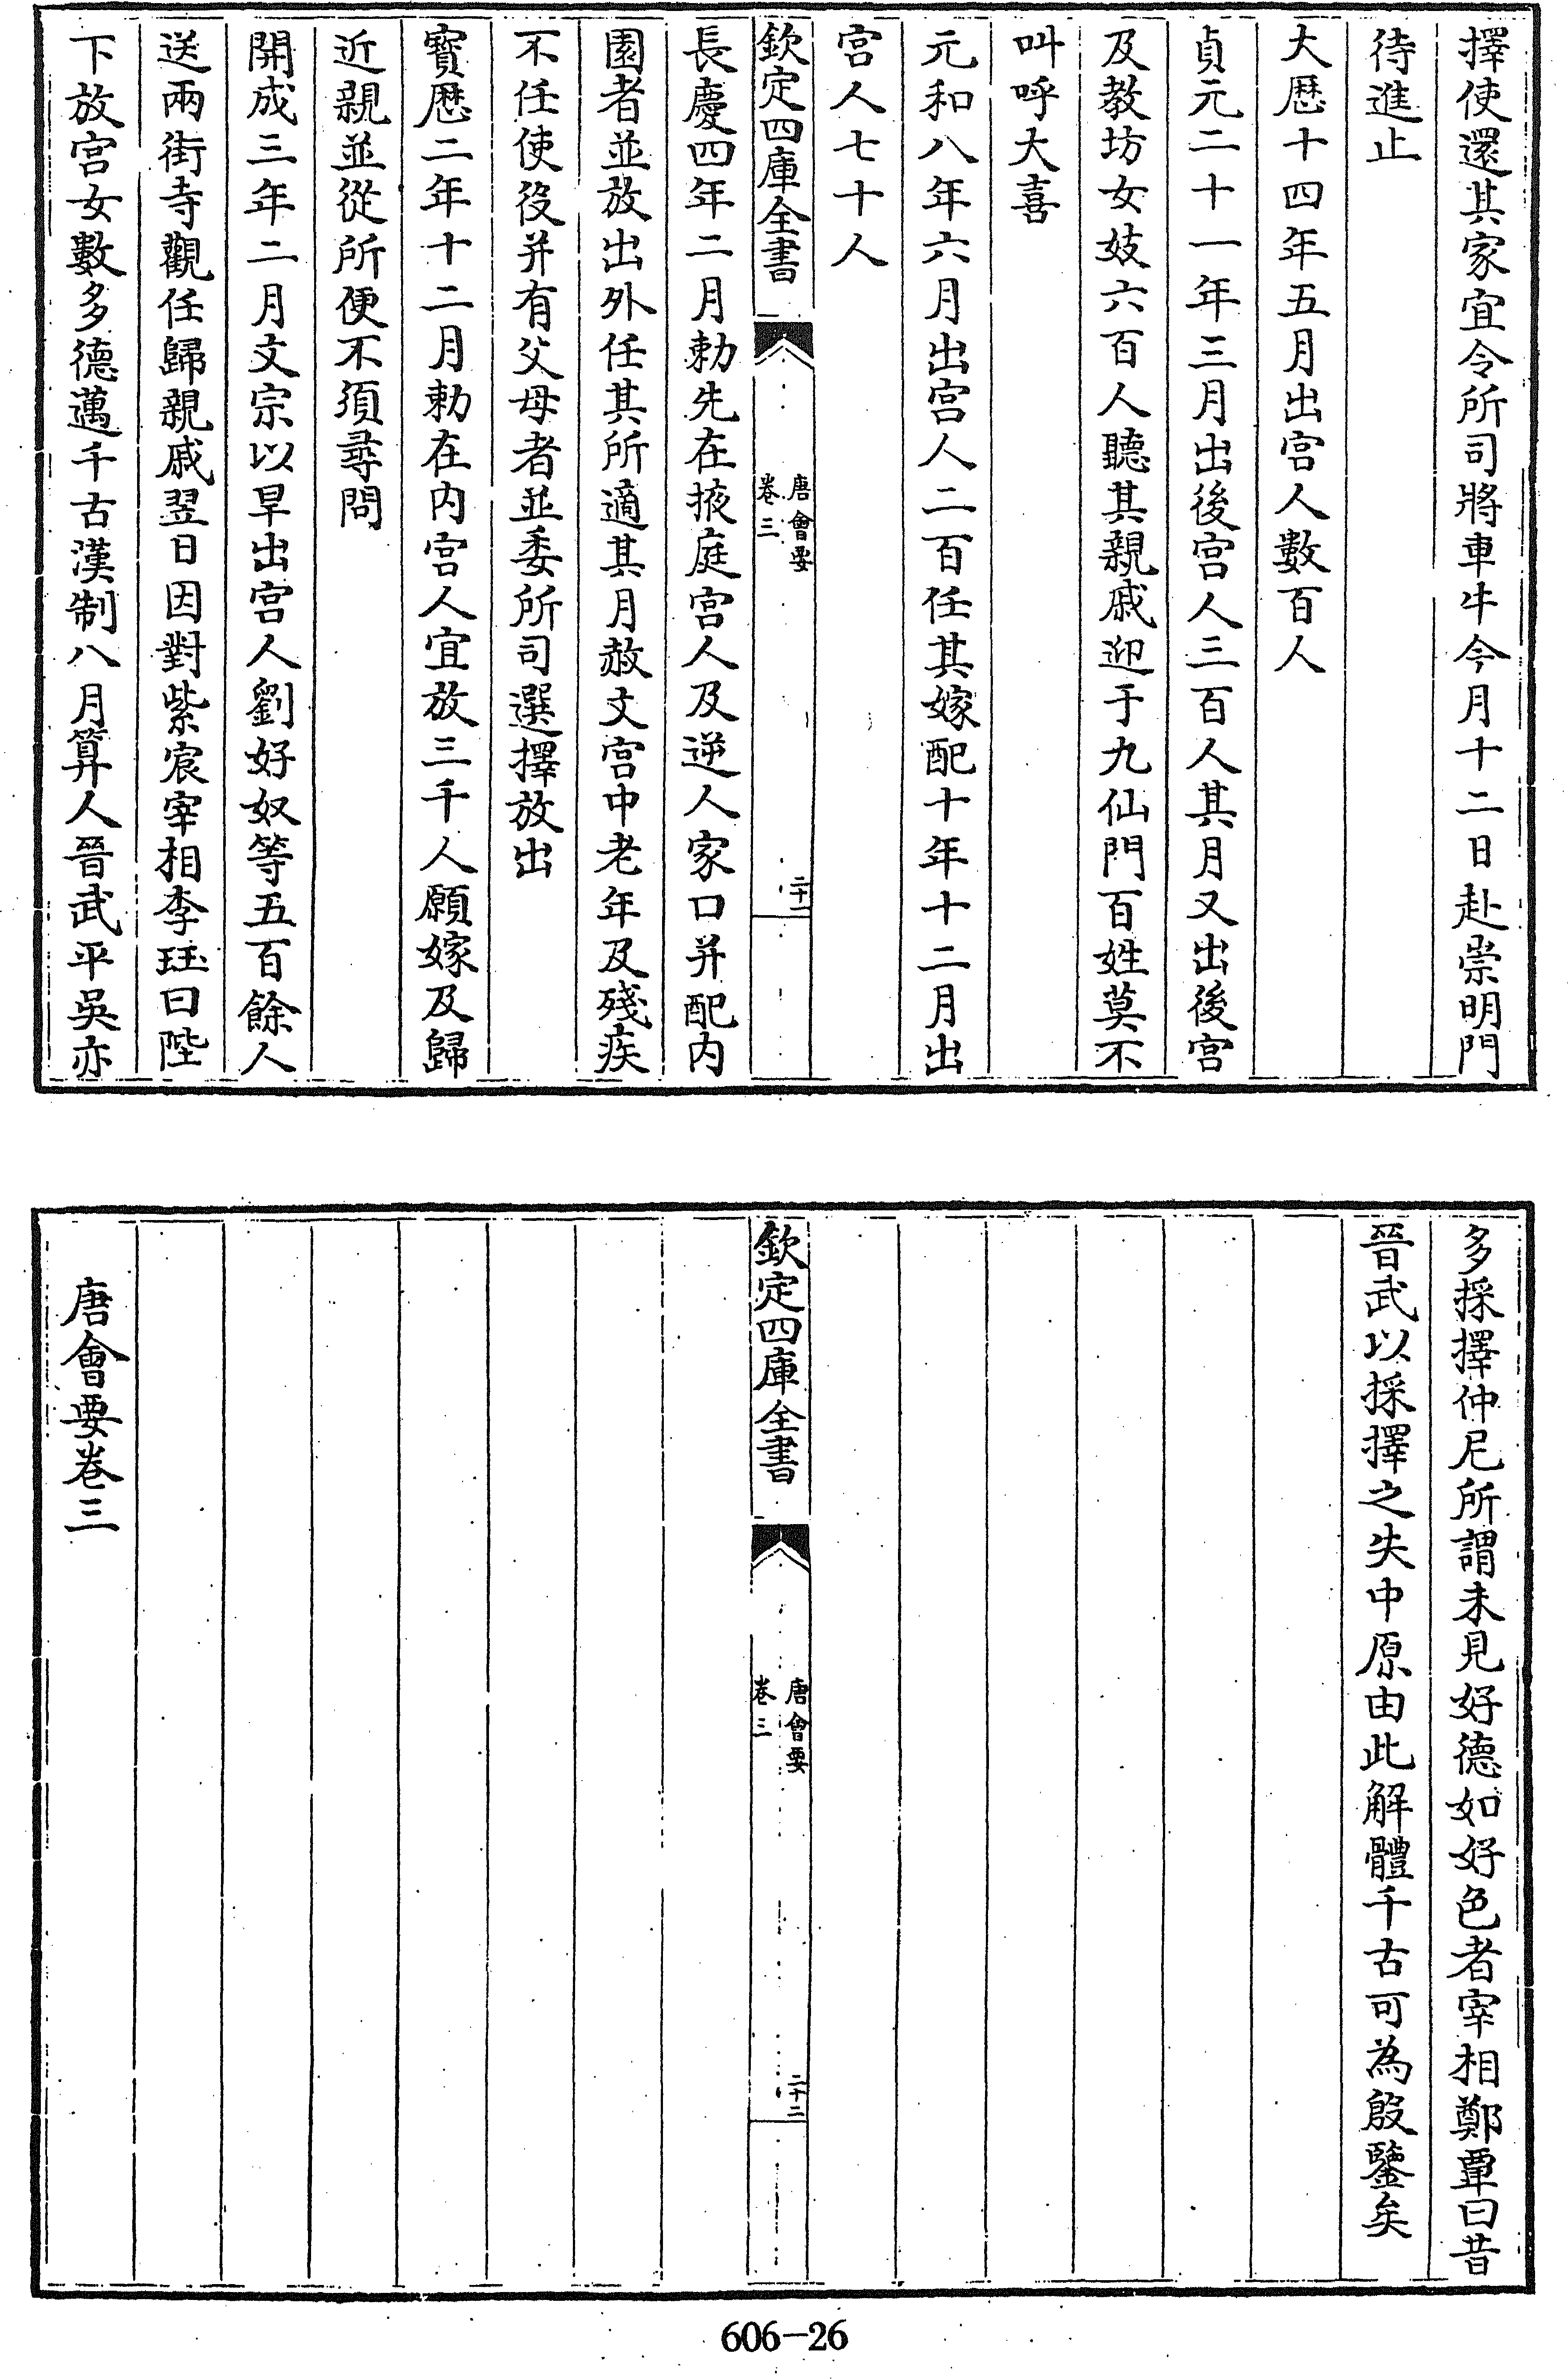 擇使還其家宜令所司將車牛今月十二日赴崇明門
待進止
大厯十四年五月出宫人數百人
貞元二十一年三月出後宫人三百人其月又出後宫
及教坊女妓六百人聽其親戚迎于九仙門百姓莫不
叫呼大喜
元和八年六月出宫人二百任其嫁配十年十二月出
宫人七十人
欽定四庫全書
唐會要
卷三
二十一
長慶四年二月勅先在掖庭宫人及逆人家口并配内
園者並放出外任其所適其月赦文宫中老年及殘疾
不任使役并有父母者並委所司選擇放出
寳厯二年十二月勅在内宫人宜放三千人願嫁及歸
近親並從所便不須尋問
開成三年二月文宗以旱出宫人劉好奴等五百餘人
送兩街寺觀任歸親戚翌日因對紫宸宰相李珏曰陛
下放宫女數多德邁千古漢制八月算人晉武平吳亦
多採擇仲尼所謂未見好德如好色者宰相鄭覃曰昔
晉武以採擇之失中原由此解體千古可為殷鑒矣
欽定四庫全書
唐會要
卷三
二十二
唐會要卷三
606-26